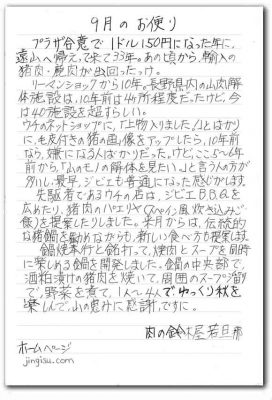 9月のお便り
プラザ合意で1ドル150円になった年に、
遠山へ帰えって来て33年。あの頃から、輸入の
猪肉・鹿肉が出回ったっけ。
リーマンショックから10年。長野県内の山肉解
体施設は、10年前は4ヶ所程度だったけど、今
は40施設を超すらしい。
ウチのネットショップに、「上物入りました。」とばかり
に、毛皮付きの猪の画像をアップしたら、10年前
なら、嫌になる人ばかりだった。けど、ここ5〜6年
前から、「山のモノの解体を見たい。」と言う人の方が
多いし、最早、ジビエも普通になった感じがします。
先駆者であるウチの店は、ジビエBBQを
広めたり、猪肉のパエリヤ(スペイン風炊き込みご
飯)を提案したりしました。来月からは、伝統的
な猪鍋を勧めながらも、新しい食べ方も提案します。
鍋焼来行と銘打って、焼肉とスープを同時
に楽しめる鍋を開発しました。鍋の中央部で、
酒粕漬けの猪肉を焼いて、周囲のスープ部分
で、野菜を煮て、1人〜4人でゆっくり秋を
楽しんで、山の恵みに感謝、ですに。
肉の鈴木屋 若旦那
ホームページ
jingisu.com